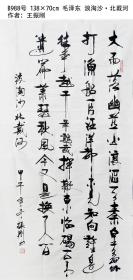 B988号 138×70cm 毛泽东 浪淘沙·北戴河
作者：王振刚
大雨落幽燕白浪滔天秦皇岛外
打鱼船一片汪洋都不见知向谁边
往事越千年魏武挥鞭东临碣石有
遗篇萧瑟秋风今又是换了人间
浪淘沙 北戴河
甲午